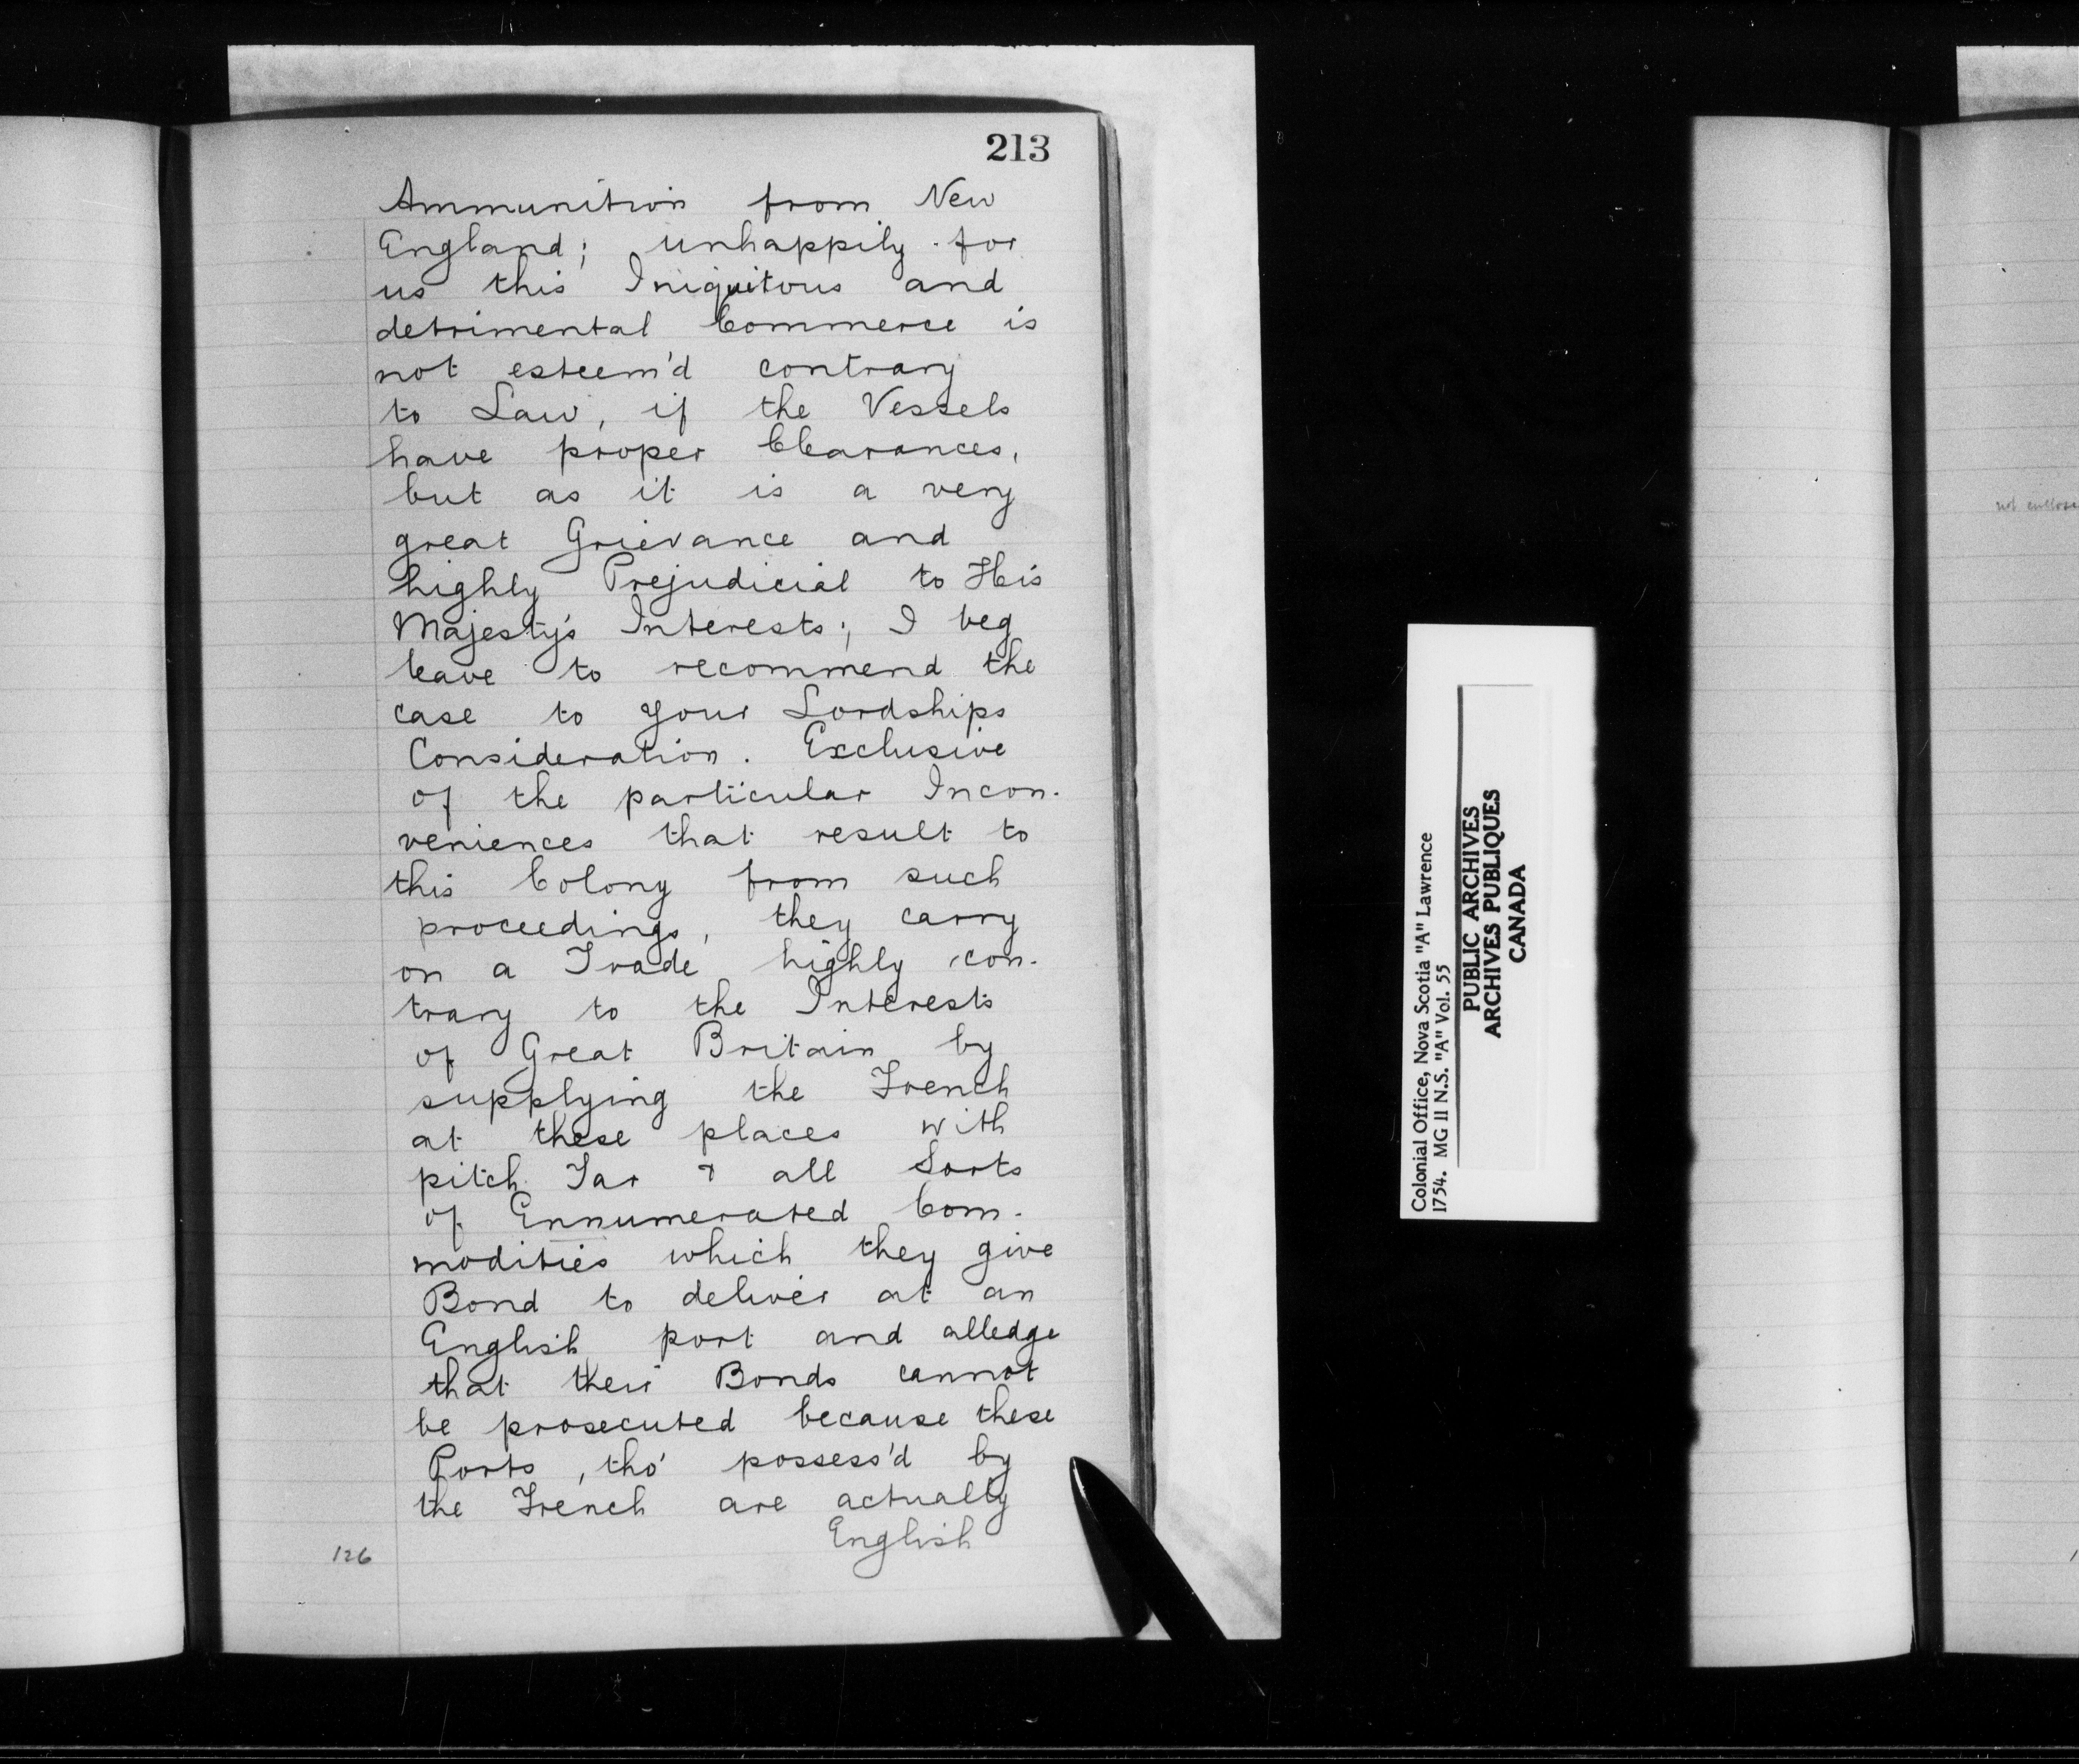 213
Ammunition from New
England; unhappily for
us this Iniquitous and
detrimental Commerce is
not esteem'd contrary
to Law, if the Vessels
have proper Clearances,
but as it is a very
great Grievance and
highly Prejudicial to His
Majesty's Interests; I beg
leave to recommend the
case to your Lordships
Consideration. Exclusive
of the particular Incon-
veniences that result to
this Colony from such
proceedings, they carry
on a Trade highly con-
trary to the Interests
of Great Britain by
supplying the French
at these places with
pitch Tar & all Sorts
of Ennumerated Com-
modities which they give
Bond to deliver at an
English port and alledge
that their Bonds cannot
be prosecuted because these
Ports, tho' possess'd by
the French are actually
English
126
Colonial Office, Nova Scotia "A" Lawrence
1754. MG II N.S. "A" Vol. 55
PUBLIC ARCHIVES
ARCHIVES PUBLIQUES
CANADA
not